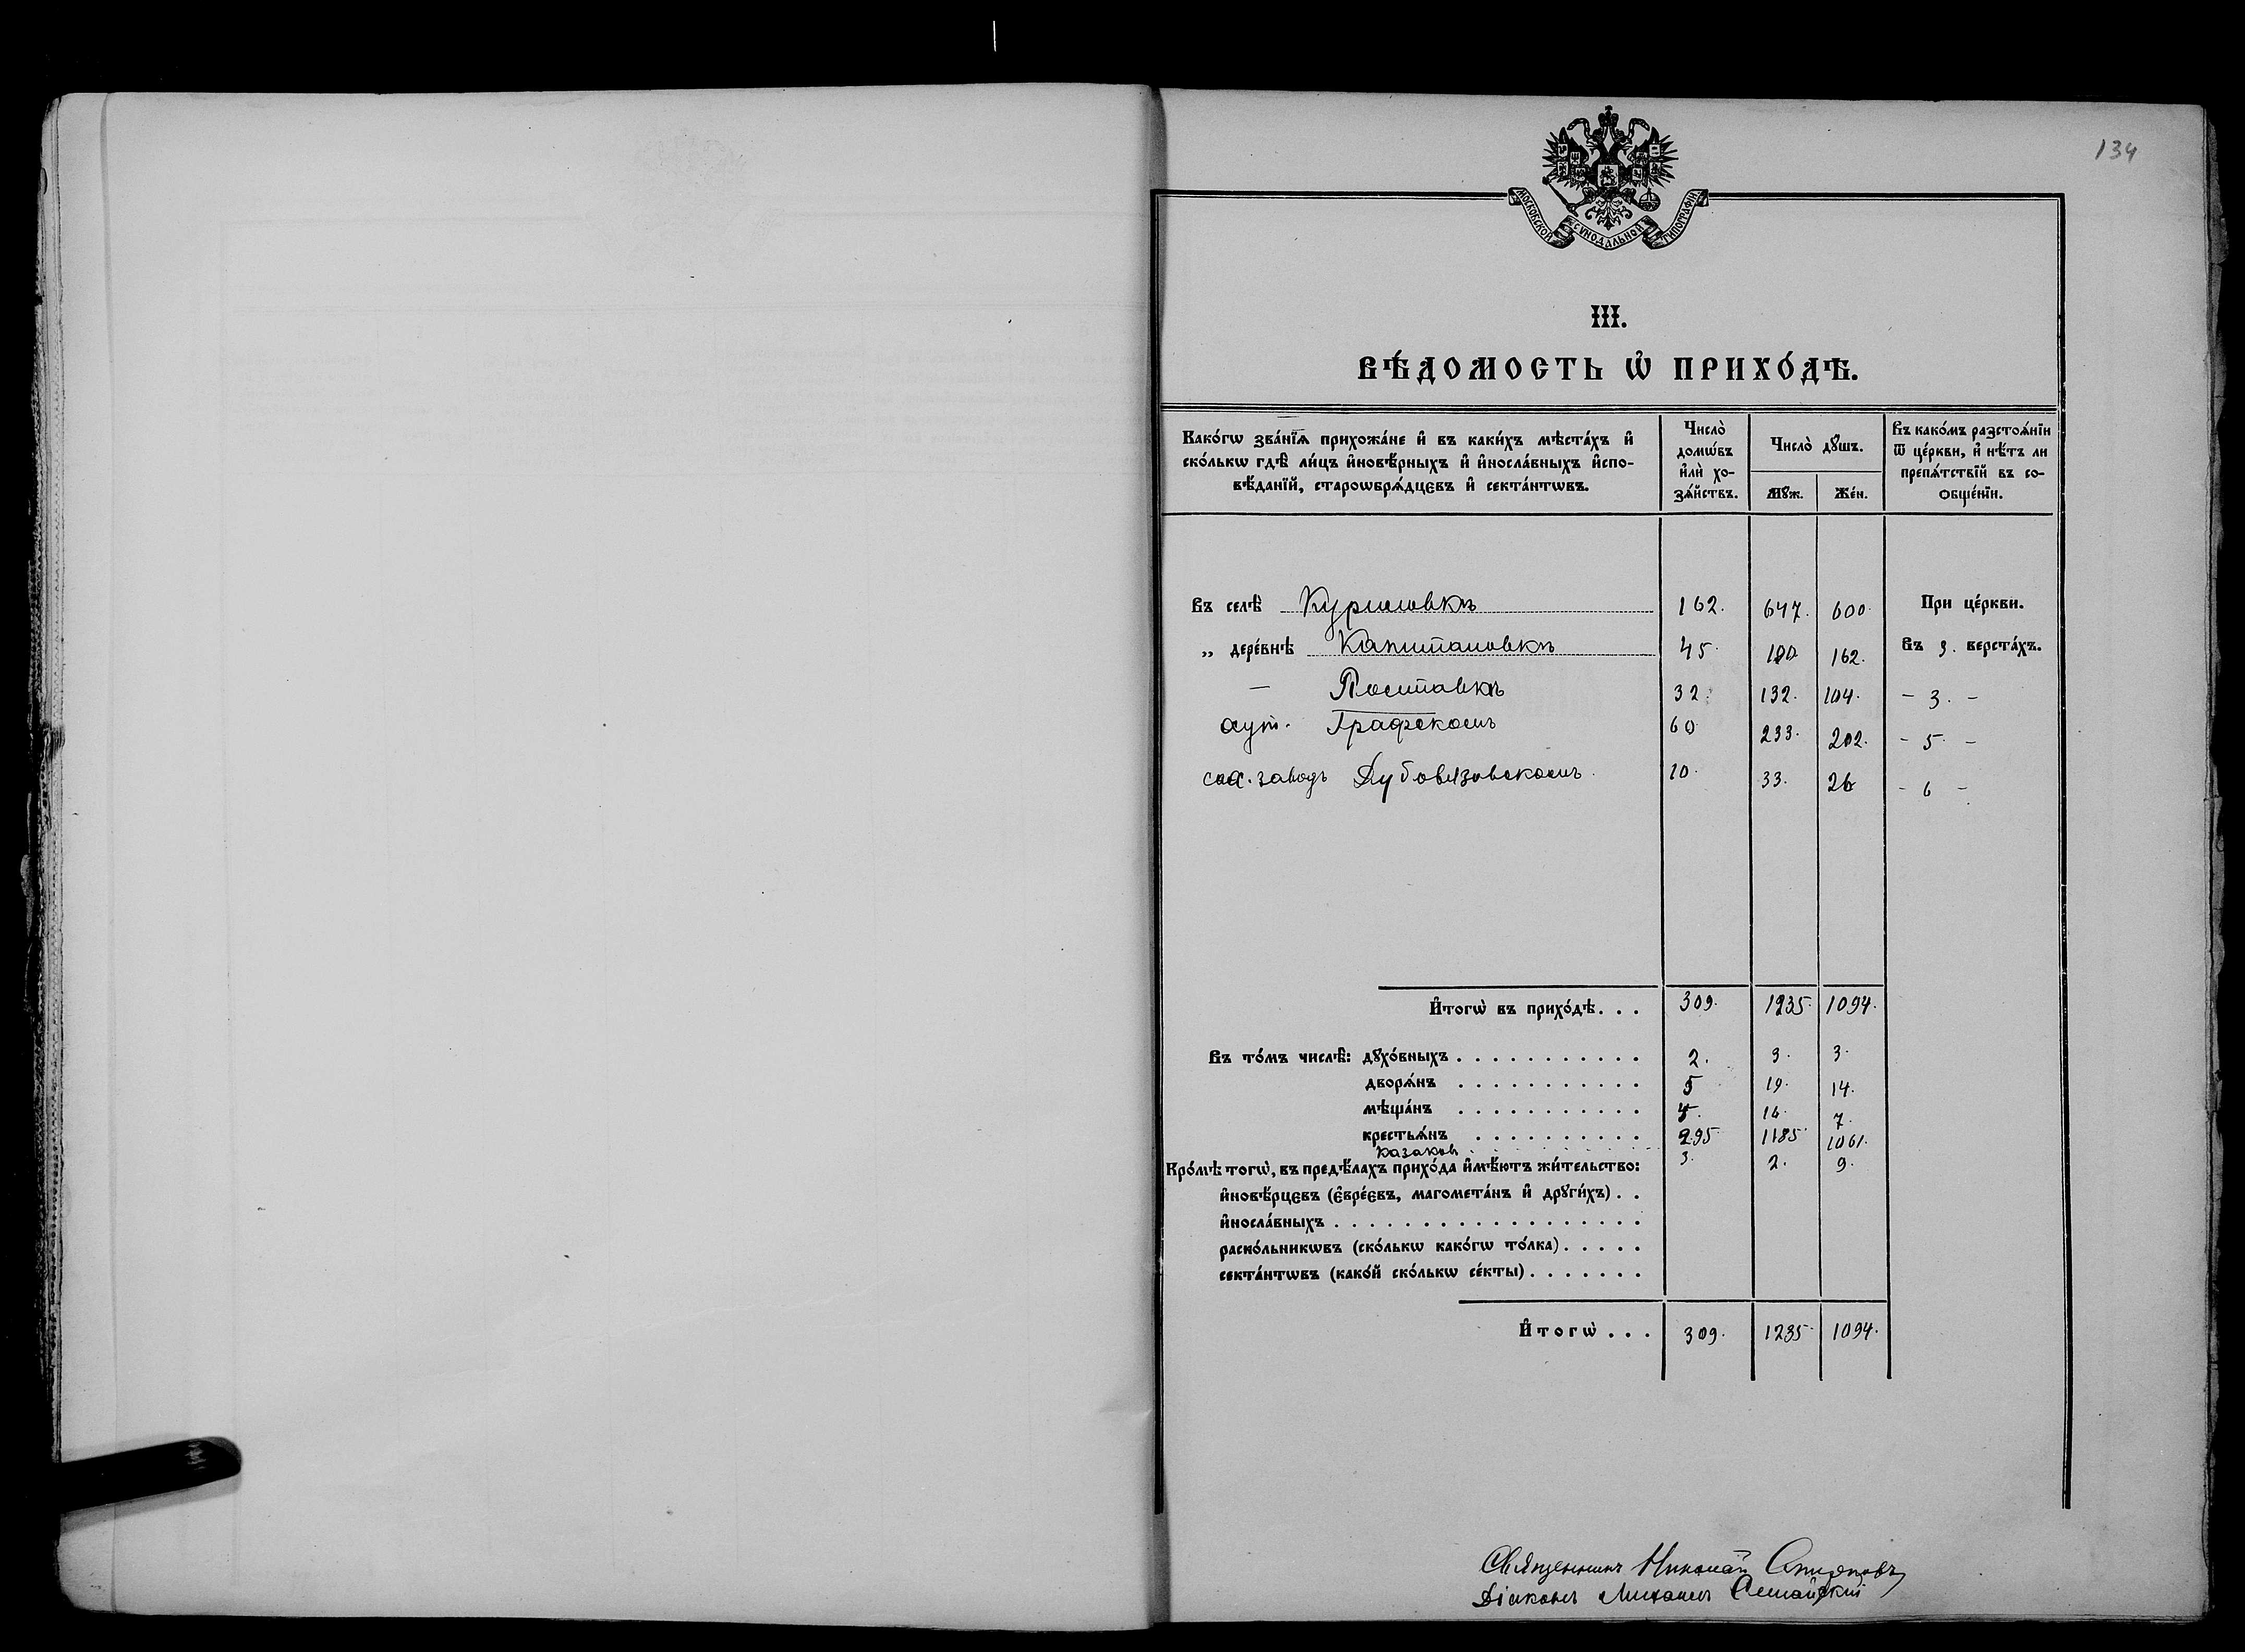 134
МОСКОВСКОЙ СѴНОДАЛЬНОЙ ТИПОГРАФІИ.
III.
ВѢ́ДОМОСТЬ Ѡ҆ ПРИХО́ДѢ.
Како́гѡ зва́нїѧ прихожа́не и҆ въ каки́хъ мѣста́хъ и҆
ско́лькѡ гдѣ̀ ли́цъ и҆новѣ́рныхъ и҆ и҆носла́вныхъ и҆спо-
вѣ́данїй, староѡбрѧ́дцєвъ и҆ секта́нтѡвъ.
Число̀
домѡ́въ
и҆лѝ хо-
зѧ́йствъ.
Число̀ дꙋ́шъ.
Мꙋ́ж.
Же́н.
Въ како́мъ разстоѧ́нїи
ѿ це́ркви, и҆ нѣ́тъ ли
препѧ́тствїй въ со-
ѻбще́нїи.
Въ селѣ̀ Куриловкѣ 162. 647. 600. При це́ркви.
„ дере́внѣ Капитановкѣ 45. 190. 162. Въ 3. верста́хъ.
— Поставкѣ 32. 132. 104. – 3. –
хут. Графскомъ 60 233. 202. – 5 –
сах. заводъ Дубовязовскомъ. 10. 33. 26 – 6 –
И҆тогѡ̀ въ прихо́дѣ. . . 309. 1235. 1094.
Въ то́мъ числѣ̀: дꙋхо́вныхъ . . . . . . . . . . . 2. 3. 3.
дворѧ́нъ . . . . . . . . . . . 5 19. 14.
мѣща́нъ . . . . . . . . . . . 4. 16. 7.
крестьѧ́нъ . . . . . . . . . . 295 1185 1061.
Казаков 3. 2. 9.
Кро́мѣ тогѡ̀, въ предѣ́лахъ прихо́да и҆мѣ́ютъ жи́тельство:
и҆новѣ́рцєвъ (є҆вре́євъ, магомета́нъ и҆ дрꙋги́хъ) . .
и҆носла́вныхъ . . . . . . . . . . . . . . . . . .
раско́льникѡвъ (ско́лькѡ како́гѡ то́лка) . . . . .
секта́нтѡвъ (како́й ско́лькѡ се́кты) . . . . . . .
И҆тогѡ̀ . . . 309. 1235. 1094.
Священникъ Николай
Діаконъ Михаилъ